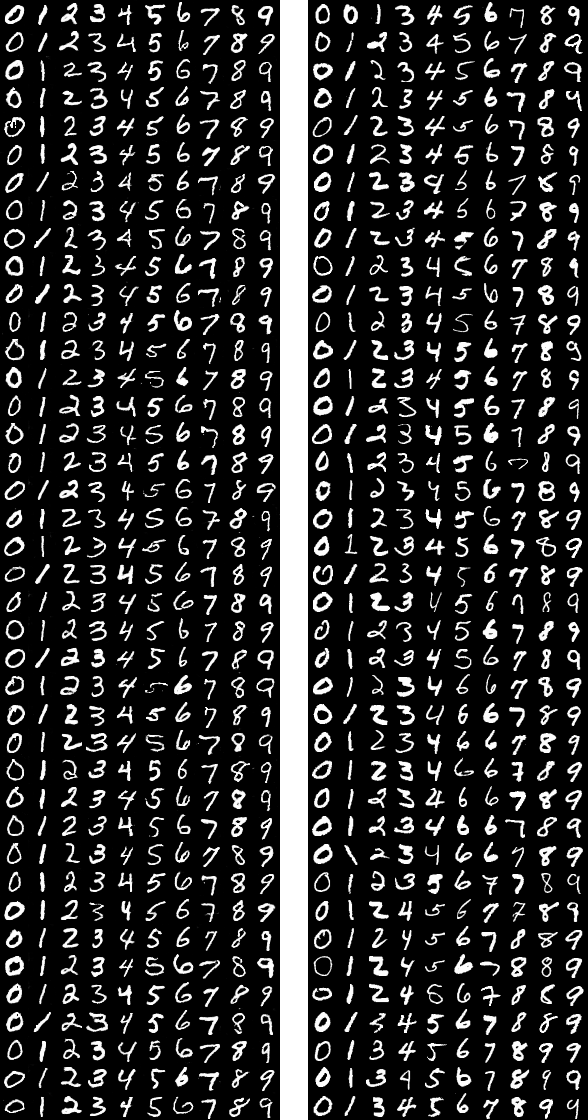 0 1 2 3 4 5 6 7 8 9
0 1 2 3 4 5 6 7 8 9
0 1 2 3 4 5 6 7 8 9
0 1 2 3 4 5 6 7 8 9
0 1 2 3 4 5 6 7 8 9
0 1 2 3 4 5 6 7 8 9
0 1 2 3 4 5 6 7 8 9
0 1 2 3 4 5 6 7 8 9
0 1 2 3 4 5 6 7 8 9
0 1 2 3 4 5 6 7 8 9
0 1 2 3 4 5 6 7 8 9
0 1 2 3 4 5 6 7 8 9
0 1 2 3 4 5 6 7 8 9
0 1 2 3 4 5 6 7 8 9
0 1 2 3 4 5 6 7 8 9
0 1 2 3 4 5 6 7 8 9
0 1 2 3 4 5 6 7 8 9
0 1 2 3 4 5 6 7 8 9
0 1 2 3 4 5 6 7 8 9
0 1 2 3 4 5 6 7 8 9
0 1 2 3 4 5 6 7 8 9
0 1 2 3 4 5 6 7 8 9
0 1 2 3 4 5 6 7 8 9
0 1 2 3 4 5 6 7 8 9
0 1 2 3 4 5 6 7 8 9
0 1 2 3 4 5 6 7 8 9
0 1 2 3 4 5 6 7 8 9
0 1 2 3 4 5 6 7 8 9
0 1 2 3 4 5 6 7 8 9
0 1 2 3 4 5 6 7 8 9
0 1 2 3 4 5 6 7 8 9
0 1 2 3 4 5 6 7 8 9
0 1 2 3 4 5 6 7 8 9
0 1 2 3 4 5 6 7 8 9
0 1 2 3 4 5 6 7 8 9
0 1 2 3 4 5 6 7 8 9
0 1 2 3 4 5 6 7 8 9
0 1 2 3 4 5 6 7 8 9
0 1 2 3 4 5 6 7 8 9
0 1 2 3 4 5 6 7 8 9
0 0 1 3 4 5 6 7 8 9
0 1 2 3 4 5 6 7 8 9
0 1 2 3 4 5 6 7 8 9
0 1 2 3 4 5 6 7 8 9
0 1 2 3 4 5 6 7 8 9
0 1 2 3 4 5 6 7 8 9
0 1 2 3 4 5 6 7 8 9
0 1 2 3 4 5 6 7 8 9
0 1 2 3 4 5 6 7 8 9
0 1 2 3 4 5 6 7 8 9
0 1 2 3 4 5 6 7 8 9
0 1 2 3 4 5 6 7 8 9
0 1 2 3 4 5 6 7 8 9
0 1 2 3 4 5 6 7 8 9
0 1 2 3 4 5 6 7 8 9
0 1 2 3 4 5 6 7 8 9
0 1 2 3 4 5 6 7 8 9
0 1 2 3 4 5 6 7 8 9
0 1 2 3 4 5 6 7 8 9
0 1 2 3 4 5 6 7 8 9
0 1 2 3 4 5 6 7 8 9
0 1 2 3 4 5 6 7 8 9
0 1 2 3 4 5 6 7 8 9
0 1 2 3 4 5 6 7 8 9
0 1 2 3 4 6 6 7 8 9
0 1 2 3 4 6 6 7 8 9
0 1 2 3 4 6 6 7 8 9
0 1 2 3 4 6 6 7 8 9
0 1 2 3 4 6 6 7 8 9
0 1 2 3 4 6 6 7 8 9
0 1 2 3 4 6 6 7 8 9
0 1 2 3 5 6 7 7 8 9
0 1 2 4 5 6 7 7 8 9
0 1 2 4 5 6 7 8 8 9
0 1 2 4 5 6 7 8 8 9
0 1 2 4 6 6 7 8 8 9
0 1 3 4 5 6 7 8 8 9
0 1 3 4 5 6 7 8 9 9
0 1 3 4 5 6 7 8 9 9
0 1 3 4 5 6 7 8 9 9